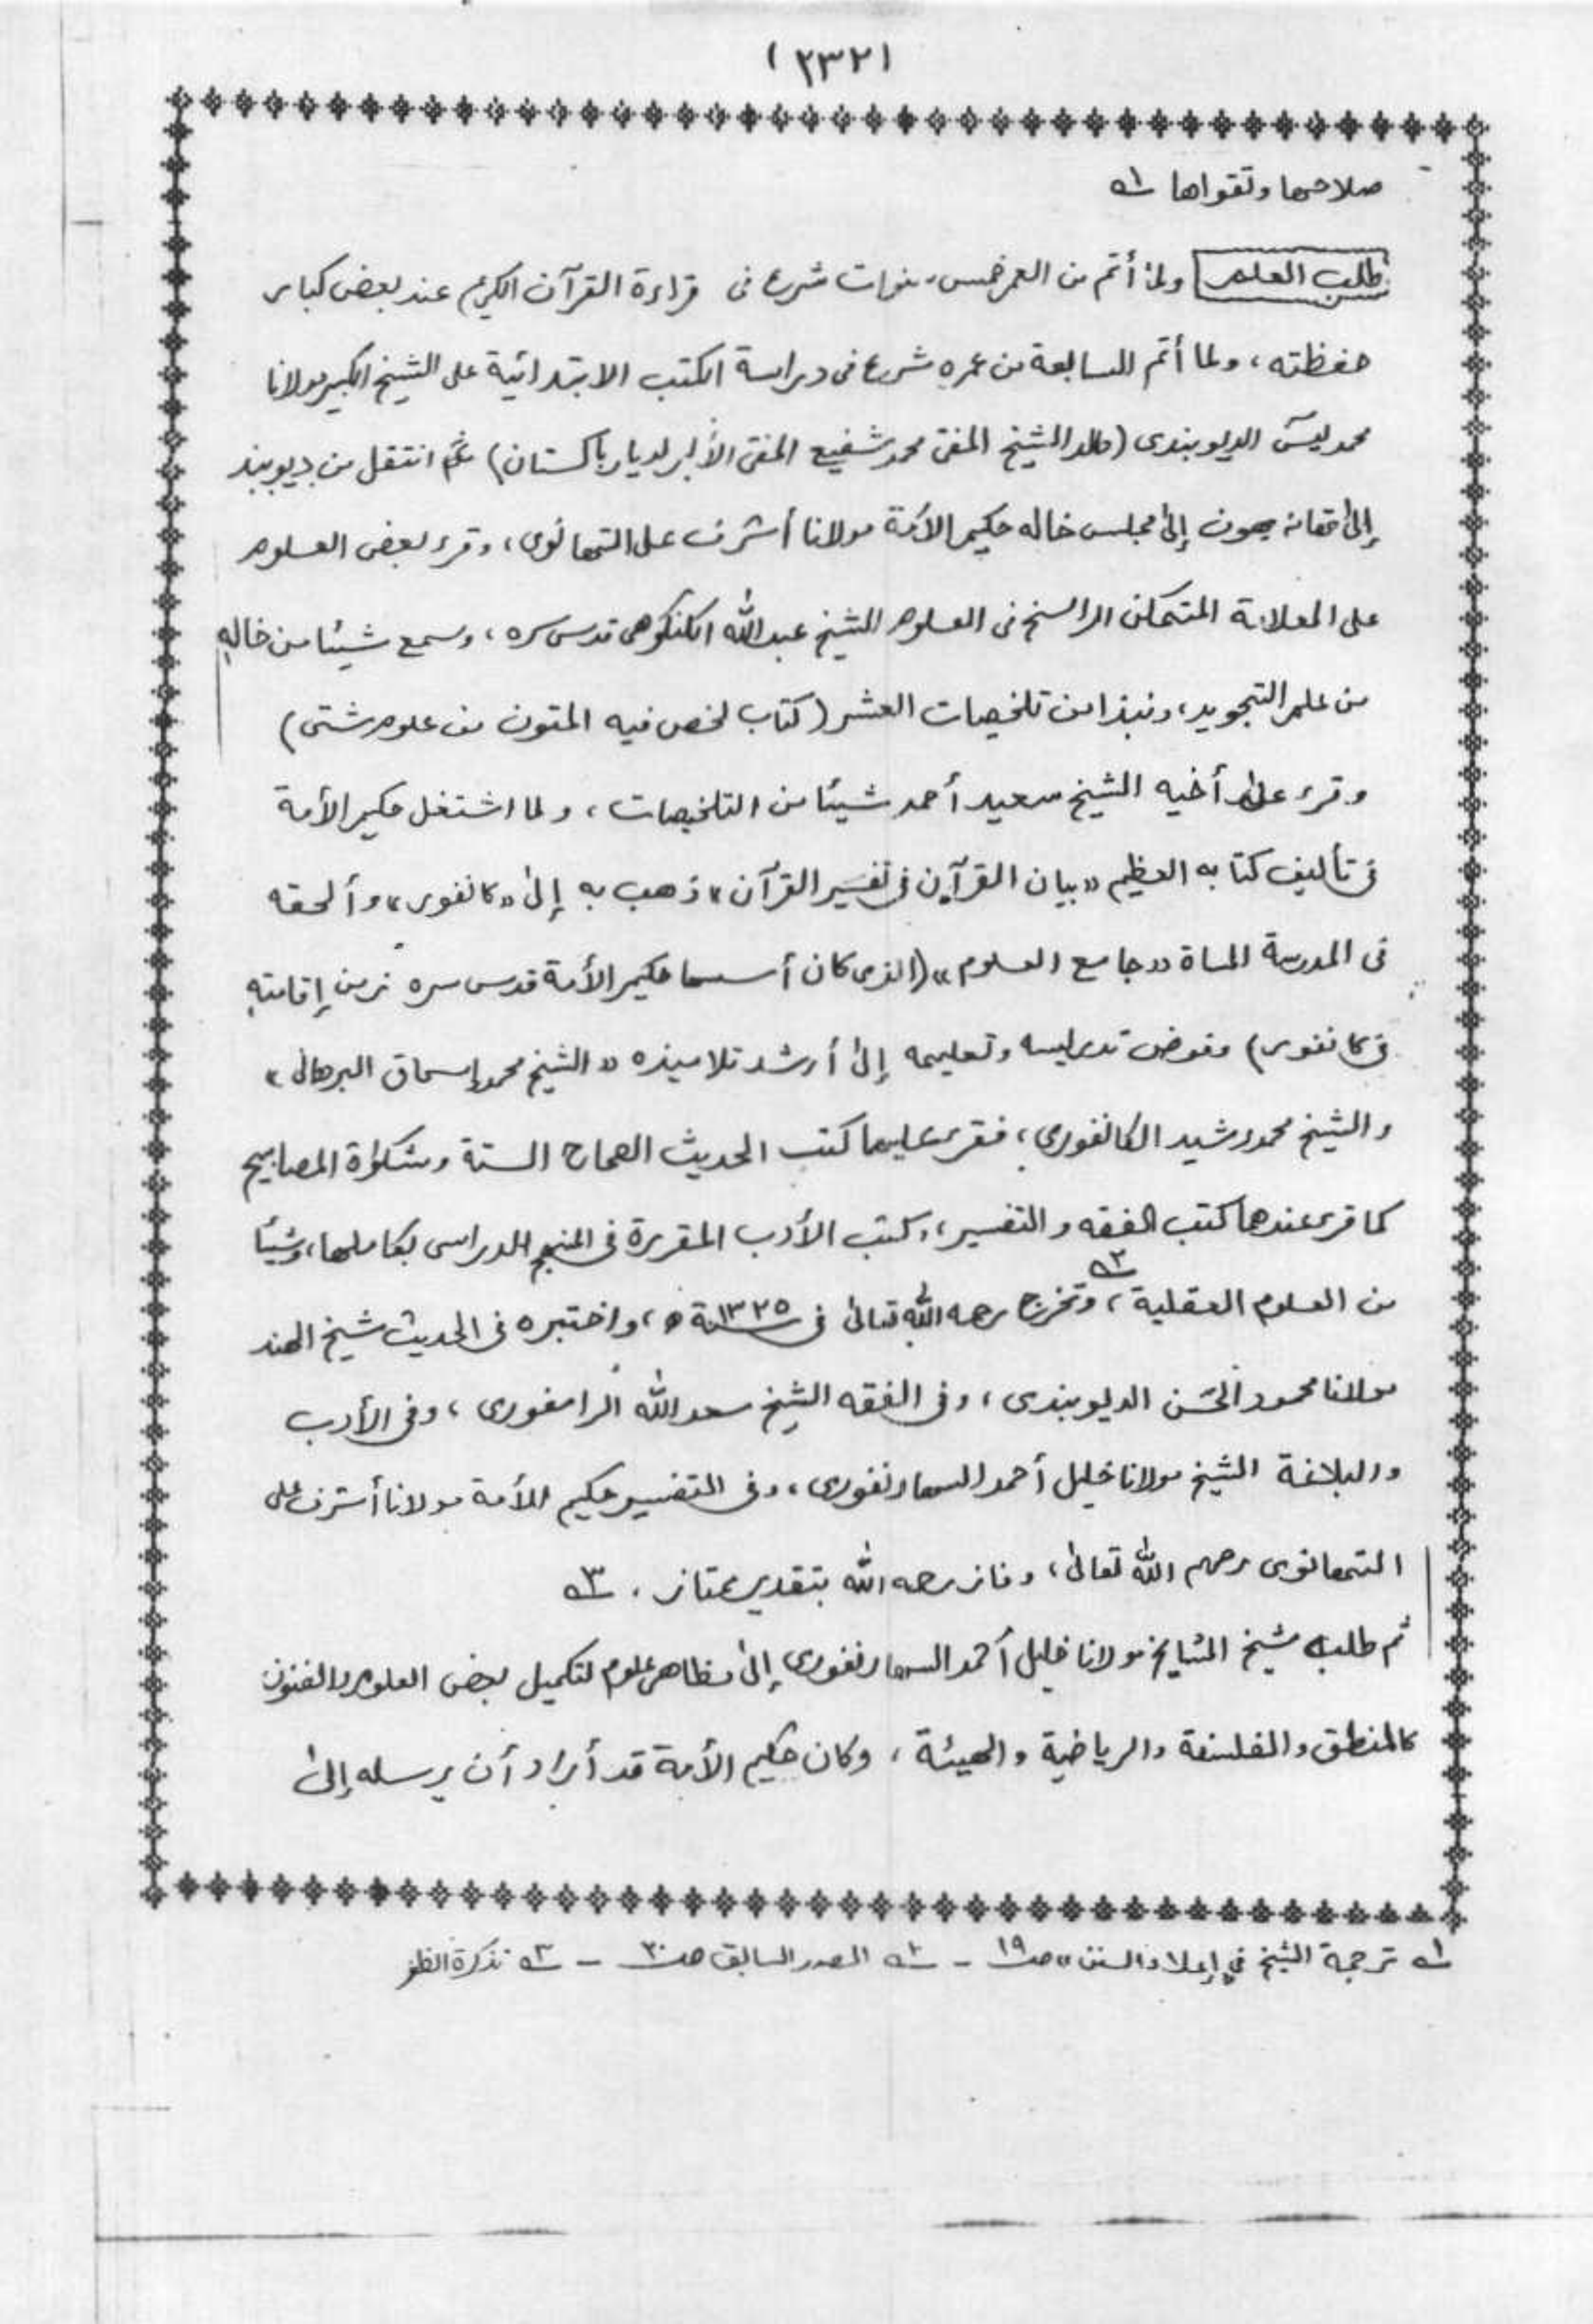 (٢٣٢)
صلاحها وتقواها ١ه
طلب العلم ولما أتم من العمر خمس سنوات شرع فى قراءة القرآن الكريم عند بعض كبار
حفظته، ولما أتم السابعة من عمره شرع فى دراسة الكتب الابتدائية على الشيخ الكبير مولانا
محمد يسٓ الديوبندى (والد الشيخ المفتى محمد شفيع المفتى الأكبر لديار باكستان) ثم انتقل من ديوبند
إلى تهانه بهون إلى مجلس خاله حكيم الأمة مولانا أشرف على التهانوى، وقرء بعض العلوم
على العلامة المتمكن الراسخ فى العلوم الشيخ عبد الله الكنكوهى قدس سره، وسمع شيئا من خاله
من علم التجويد، ونبذا من تلخيصات العشر (كتاب لخص فيه المتون من علوم شتى)
وقرء على أخيه الشيخ سعيد أحمد شيئا من التلخيصات، ولما اشتغل حكيم الأمة
فى تأليف كتابه العظيم «بيان القرآن فى تفسير القرآن» ذهب به إلى «كانفور» وألحقه
فى المدرسة المسماة «جامع العلوم» (الذى كان أسسها حكيم الأمة قدس سره زمن إقامته
فى كانفور) وفوض تدريسه وتعليمه إلى أرشد تلاميذه «الشيخ محمد إسحاق البردوانى»
والشيخ محمد رشيد الكانفورى، فقرء عليهما كتب الحديث الصحاح الستة ومشكوٰة المصابيح
كما قرء عندهما كتب الفقه والتفسير، وكتب الأدب المقررة فى المنهج الدراسى بكاملها، وشيئا
من العلوم العقلية، ٢ه وتخرج رحمه الله تعالى فى سنة ١٣٢٥ ه، واختبره فى الحديث شيخ الهند
مولانا محمود الحسن الديوبندى، وفى الفقه الشيخ سعد الله الرامفورى، وفى الأدب
والبلاغة الشيخ مولانا خليل أحمد السهارنفورى، وفى التفسير حكيم الأمة مولانا أشرف على
التهانوى رحمهم الله تعالى، وفاز رحمه الله بتقدير ممتاز. ٣ه
ثم طلبه شيخ المشايخ مولانا خليل أحمد السهارنفورى إلى مظاهر علوم لتكميل بعض العلوم والفنون
كالمنطق والفلسفة والرياضية والهيئة، وكان حكيم الأمة قد أراد أن يرسله إلى
١ه ترجمة الشيخ فى إعلاء السنن» صـ ١٩ – ٢ه المصدر السابق صـ ٢٠ – ٣ه تذكرة الظفر